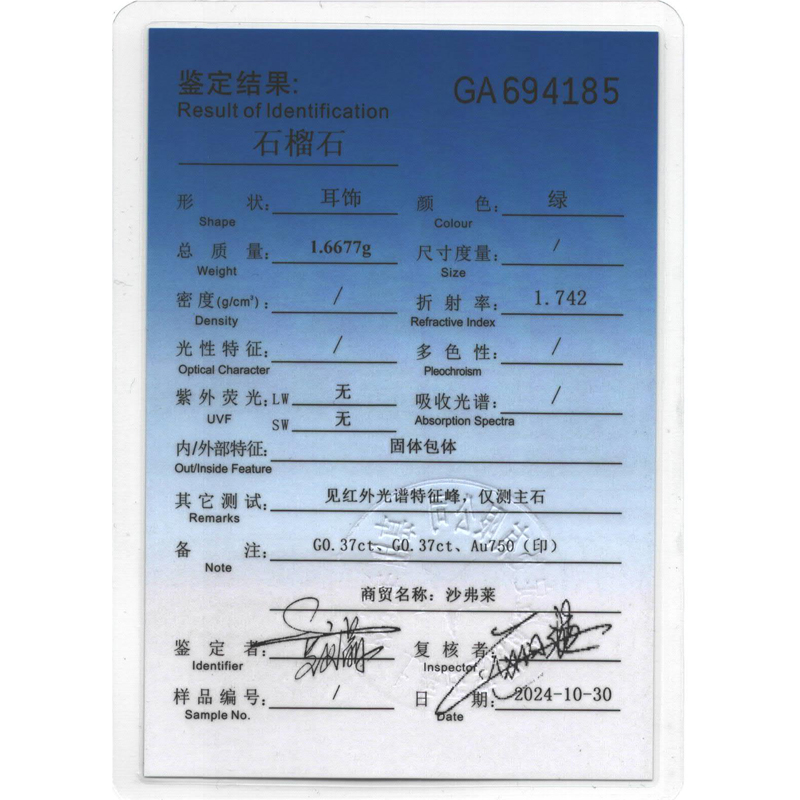 鉴定结果: GA694185
Result of Identification
石榴石
形 状: 耳饰 颜 色: 绿
Shape Colour
总 质 量: 1.6677g 尺寸度量: /
Weight Size
密度(g/cm³): / 折 射 率: 1.742
Density Refractive Index
光性特征: / 多 色 性: /
Optical Character Pleochroism
紫外荧光: LW 无 吸收光谱: /
UVF SW 无 Absorption Spectra
内/外部特征: 固体包体
Out/Inside Feature
其它测试: 见红外光谱特征峰，仅测主石
Remarks
备 注: G0.37ct、G0.37ct、Au750（印）
Note
商贸名称: 沙弗莱
鉴 定 者: 复 核 者:
Identifier Inspector
样品编号: / 日 期: 2024-10-30
Sample No. Date